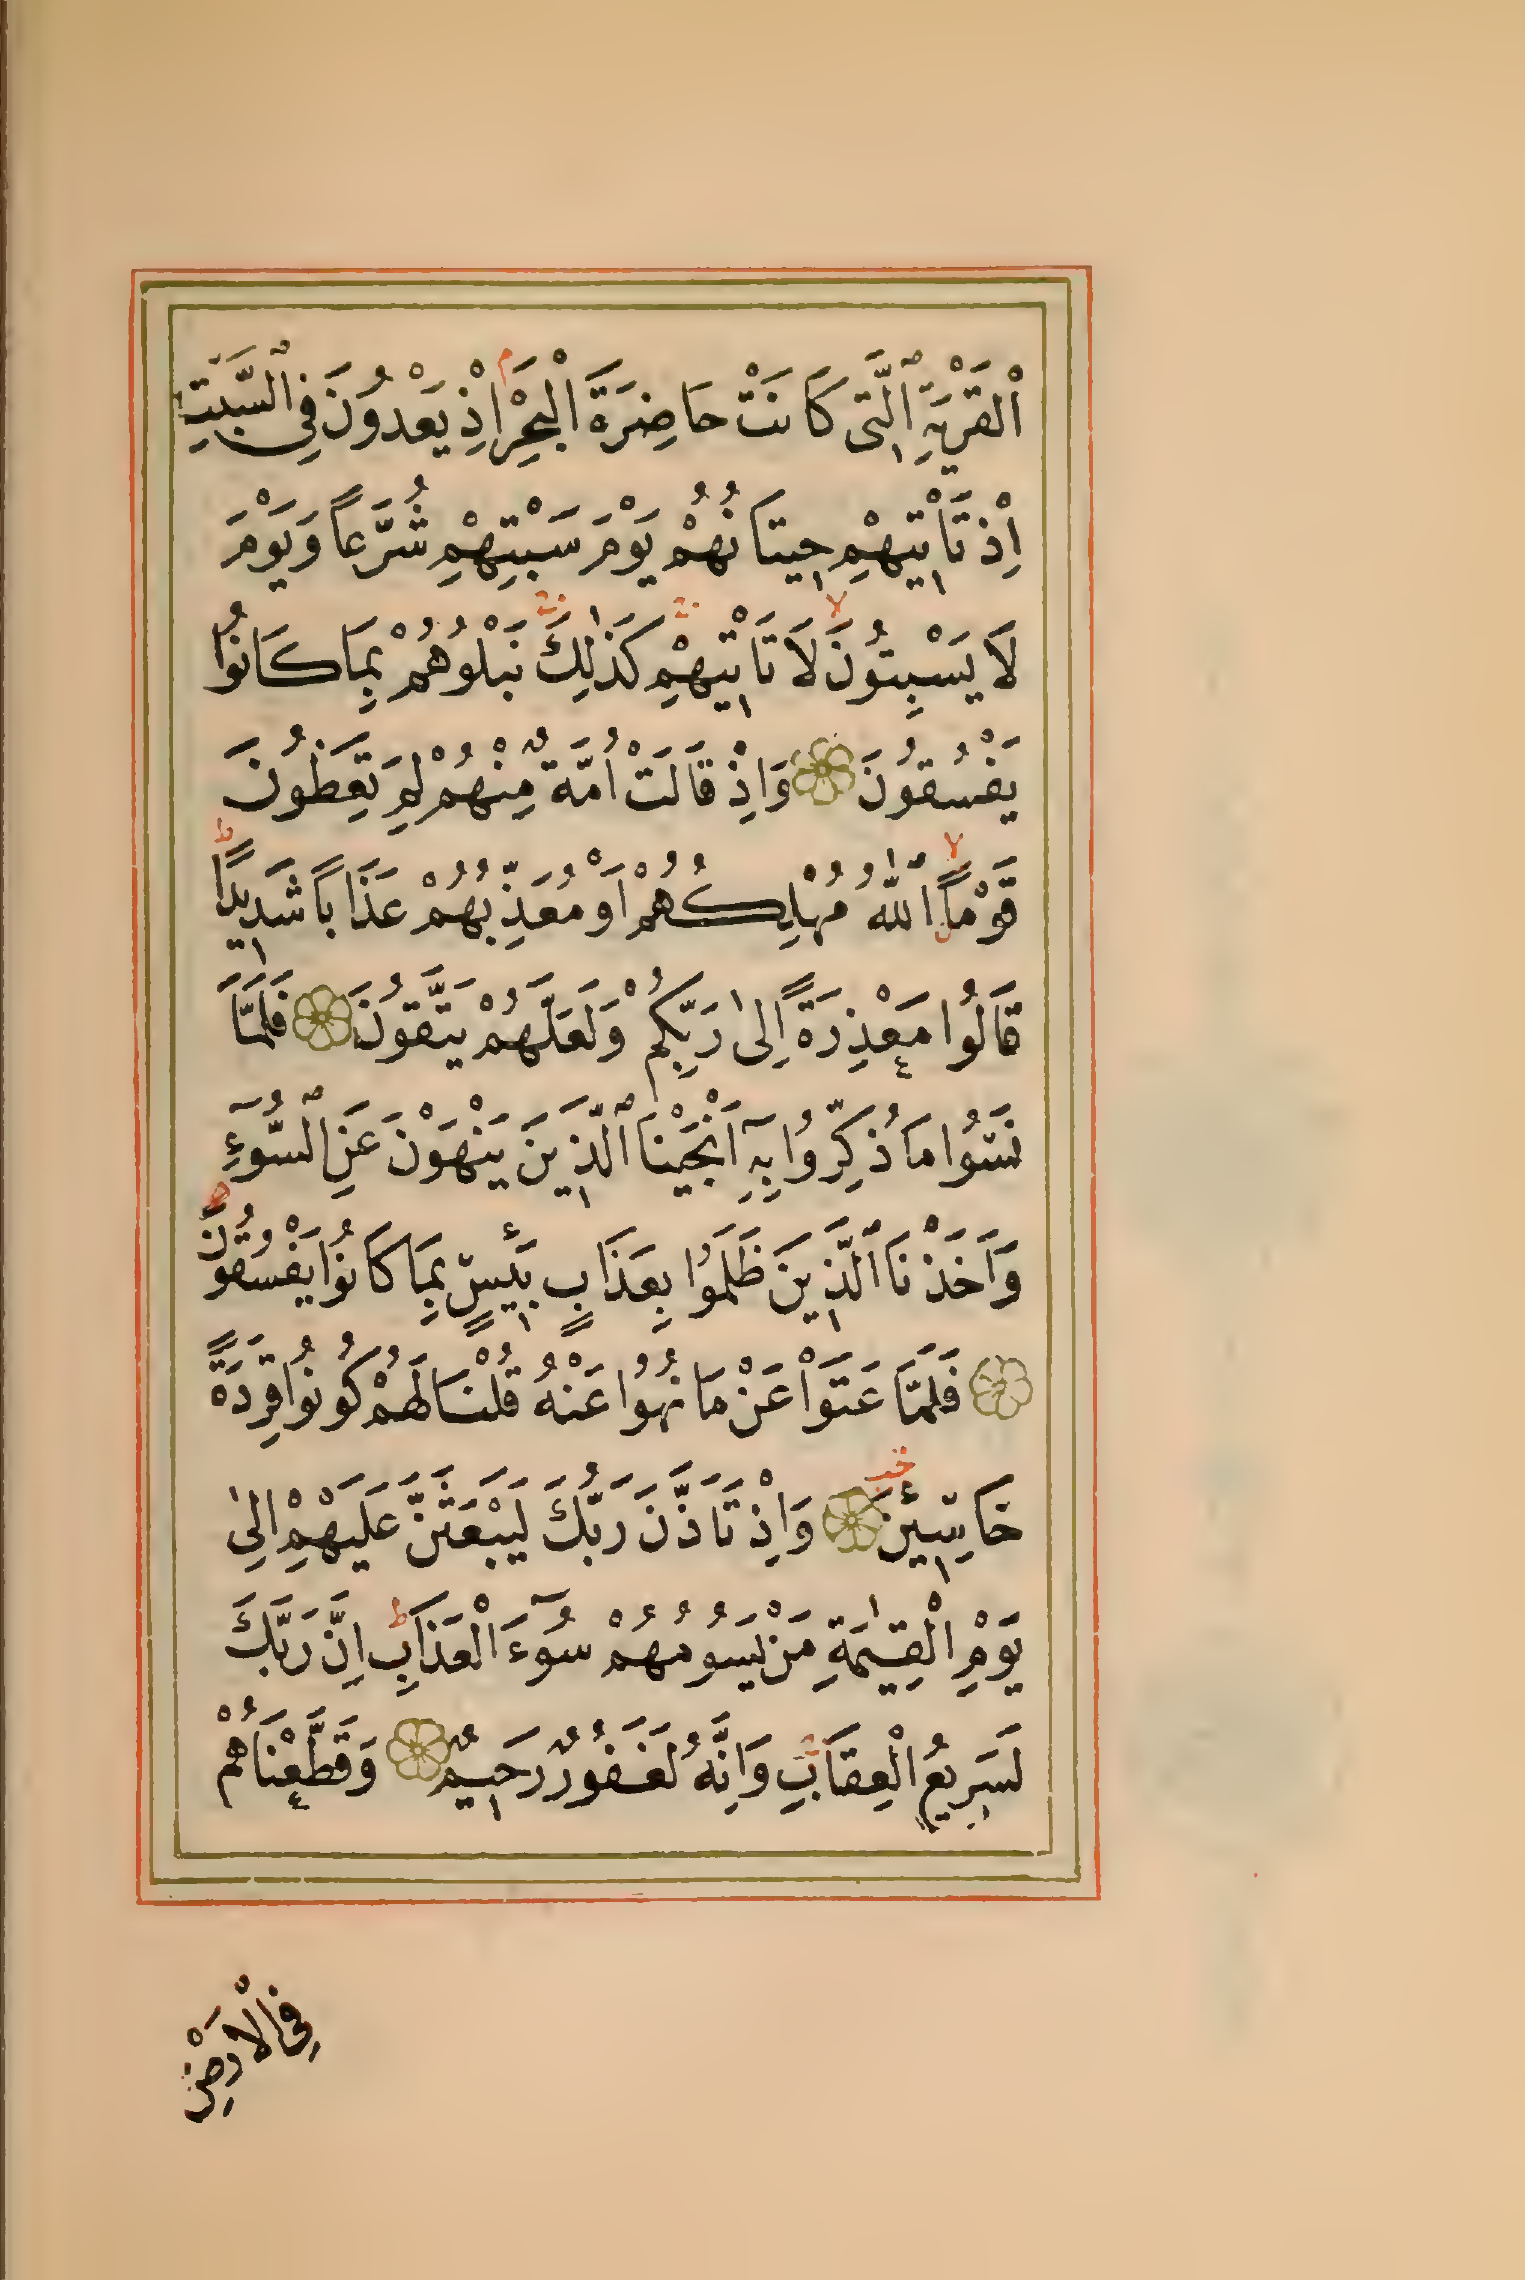 ٱلْقَرْيَةِ ٱلَّتِى كَانَتْ حَاضِرَةَ الْبَحْرِ م اِذْ يَعْدُونَ فِى ٱلسَّبْتِ
اِذْ تَاْتِيهِمْ حِيتَانُهُمْ يَوْمَ سَبْتِهِمْ شُرَّعاً وَيَوْمَ
لَا يَسْبِتُونَ لا لَا تَاْتِيهِمْ كَذٰلِكَ نَبْلُوهُمْ بِمَا كَانُوا
يَفْسُقُونَ وَاِذْ قَالَتْ اُمَّةٌ مِنْهُمْ لِمَ تَعِظُونَ
قَوْماً لا ٱللّٰهُ مُهْلِكُهُمْ اَوْ مُعَذِّبُهُمْ عَذَاباً شَدِيدًا ط
قَالُوا مَعْذِرَةً اِلٰى رَبِّكُمْ وَلَعَلَّهُمْ يَتَّقُونَ فَلَمَّا
نَسُوا مَا ذُكِّرُوا بِهِٓ اَنْجَيْنَا ٱلَّذِينَ يَنْهَوْنَ عَنِ ٱلسُّوٓءِ
وَاَخَذْنَا ٱلَّذِينَ ظَلَمُوا بِعَذَابٍ بَئِيسٍ بِمَا كَانُوا يَفْسُقُونَ
فَلَمَّا عَتَوْا عَنْ مَا نُهُوا عَنْهُ قُلْنَا لَهُمْ كُونُوا قِرَدَةً
خَاسِئِينَ وَاِذْ تَاَذَّنَ رَبُّكَ لَيَبْعَثَنَّ عَلَيْهِمْ اِلٰى
يَوْمِ الْقِيٰمَةِ مَنْ يَسُومُهُمْ سُوٓءَ الْعَذَابِ ط اِنَّ رَبَّكَ
لَسَرِيعُ الْعِقَابِ وَاِنَّهُ لَغَفُورٌ رَحِيمٌ وَقَطَّعْنَاهُمْ
فِى الْاَرْضِ